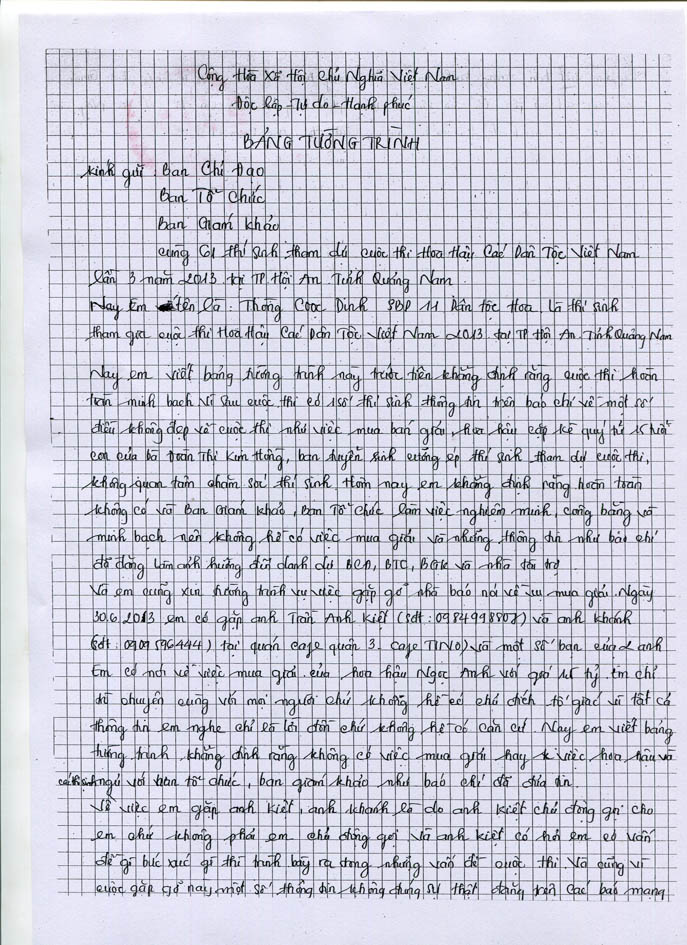 Cộng Hòa Xã Hội Chủ Nghĩa Việt Nam
Độc lập - Tự do - Hạnh phúc
BẢNG TƯỜNG TRÌNH
Kính gửi : Ban Chỉ Đạo
Ban Tổ Chức
Ban Giám Khảo
cùng 61 thí sinh tham dự cuộc thi Hoa Hậu Các Dân Tộc Việt Nam
lần 3 năm 2013 tại TP Hội An. Tỉnh Quảng Nam.
Nay Em tên là : Thông Cọoc Dinh SBD 11 Dân tộc Hoa. Là thí sinh
tham gia cuộc thi Hoa Hậu Các Dân Tộc Việt Nam 2013 tại TP Hội An. Tỉnh Quảng Nam
Nay em viết bảng tường trình này trước tiên khẳng định rằng cuộc thi hoàn
toàn minh bạch vì sau cuộc thi có 1 số thí sinh thông tin trên báo chí về một số
điều không đẹp về cuộc thi như việc mua bán giải, hoa hậu cặp kè quý tử 15 tuổi
con của bà Đoàn Thị Kim Hồng, ban tuyển sinh cưỡng ép thí sinh tham dự cuộc thi,
không quan tâm chăm sóc thí sinh. Hôm nay em khẳng định rằng hoàn toàn
không có và Ban Giám khảo, Ban Tổ Chức làm việc nghiêm minh, công bằng và
minh bạch nên không hề có việc mua giải và những thông tin như báo chí
đã đăng làm ảnh hưởng đến danh dự BCĐ, BTC, BGK và nhà tài trợ.
Và em cũng xin tường trình vụ việc gặp gỡ nhà báo nói về vụ mua giải. Ngày
30.6.2013 em có gặp anh Trần Anh Kiệt (sđt : 0984998808) và anh Khánh
(sđt : 0909596444) tại quán cafe quận 3. Cafe TINO) và một số bạn của 2 anh
Em có nói về việc mua giải của hoa hậu Ngọc Anh với giá tỷ. Em chỉ
trò chuyện cùng với mọi người chứ không hề có chủ đích tố giác vì tất cả
thông tin em nghe chỉ là lời đồn chứ không hề có căn cứ. Nay em viết bảng
tường trình khẳng định rằng không có việc mua giải hay k việc hoa hậu và
các thí sinh ngủ với ban tổ chức, ban giám khảo như báo chí đã đưa tin
Về việc em gặp anh Kiệt, anh Khánh là do anh Kiệt chủ động gọi cho
em chứ không phải em chủ động gọi và anh Kiệt có hỏi em có vấn
đề gì bức xúc gì thì trình bày ra trong những vấn đề cuộc thi. Và cũng vì
cuộc gặp gỡ này một số thông tin không đúng sự thật đăng trên các báo mạng